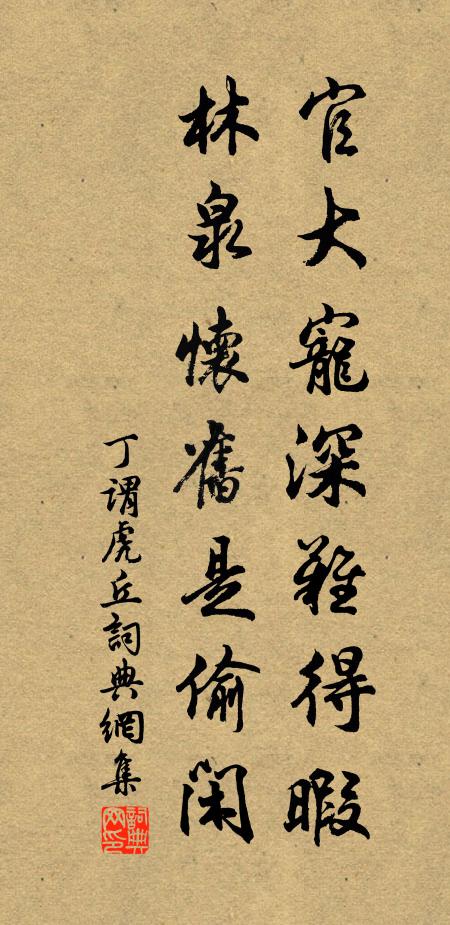 官大寵深難得暇
林泉懷舊是偷閑
丁謂虎丘詞典網集
詞典網印